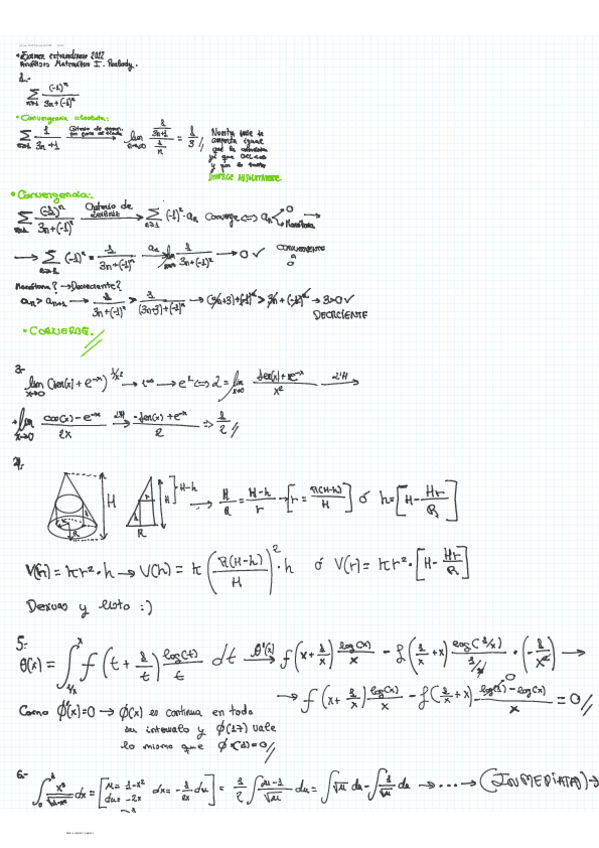 • Examen extraordinario 2022
Análisis Matemático I. Peabody.
1.-
∑ n=1 (-1)^n / 3n+(-1)^n
• Convergencia absoluta:
∑ n=1 1/3n+1 → lim n→∞ (1/3n+1)/(1/n) = 1/3 //
Nuestra serie se
comporta igual
que la armónica
• Convergencia:
∑ n=1 (-1)^n / 3n+(-1)^n Criterio de Leibniz → ∑ n=1 (-1)^n · an Converge ⟺ an → 0 Monótona →
→ ∑ n=1 (-1)^n = 1/3n+(-1)^n → an lim 1/3n+(-1)^n → 0 ✓ CONVERGENTE A 0
Monótona? → Decreciente?
an > an+1 → 1/3n+(-1)^n > 1/(3n+3)+(-1)^n → (3n+3)+(-1)^n > 3n+(-1)^n → 3>0 ✓
DECRECIENTE
• CONVERGE. //
3-
lim x→0 (sen(x)+e^-x)^1/x² → 1^∞ → e^L ⟺ L = lim x→0 sen(x)+e^-x / x² L'H →
→ lim x→0 cos(x)-e^-x / 2x L'H → -sen(x)+e^-x / 2 ⇒ 1/2 //
4.
H H H-h r R → H/R = H-h/r → [r = R(H-h)/H] ó h = [H - Hr/R]
V(h) = πr²·h → V(h) = π (R(H-h)/H)²·h ó V(r) = πr²·[H - Hr/R]
Derivas y listo :)
5-
Φ(x) = ∫ 1/x x f(t + 1/t) log(t)/t dt Φ'(x) → f(x+1/x) log(x)/x - f(1/x+x) log(1/x)/1/x · (-1/x²) →
→ f(x+1/x) log(x)/x - f(1/x+x) log(1)-log(x)/x = 0 //
Como Φ'(x)=0 → Φ(x) es continua en todo
su intervalo y Φ(17) vale
lo mismo que Φ(1)=0 //
6.-
∫ 0 1 x³/√1-x² dx = [u = 1-x² du = -2x dx = -1/2x du] = 1/2 ∫ u-1/√u du = ∫ √u du - ∫ 1/√u du → ··· → (INMEDIATAS) →